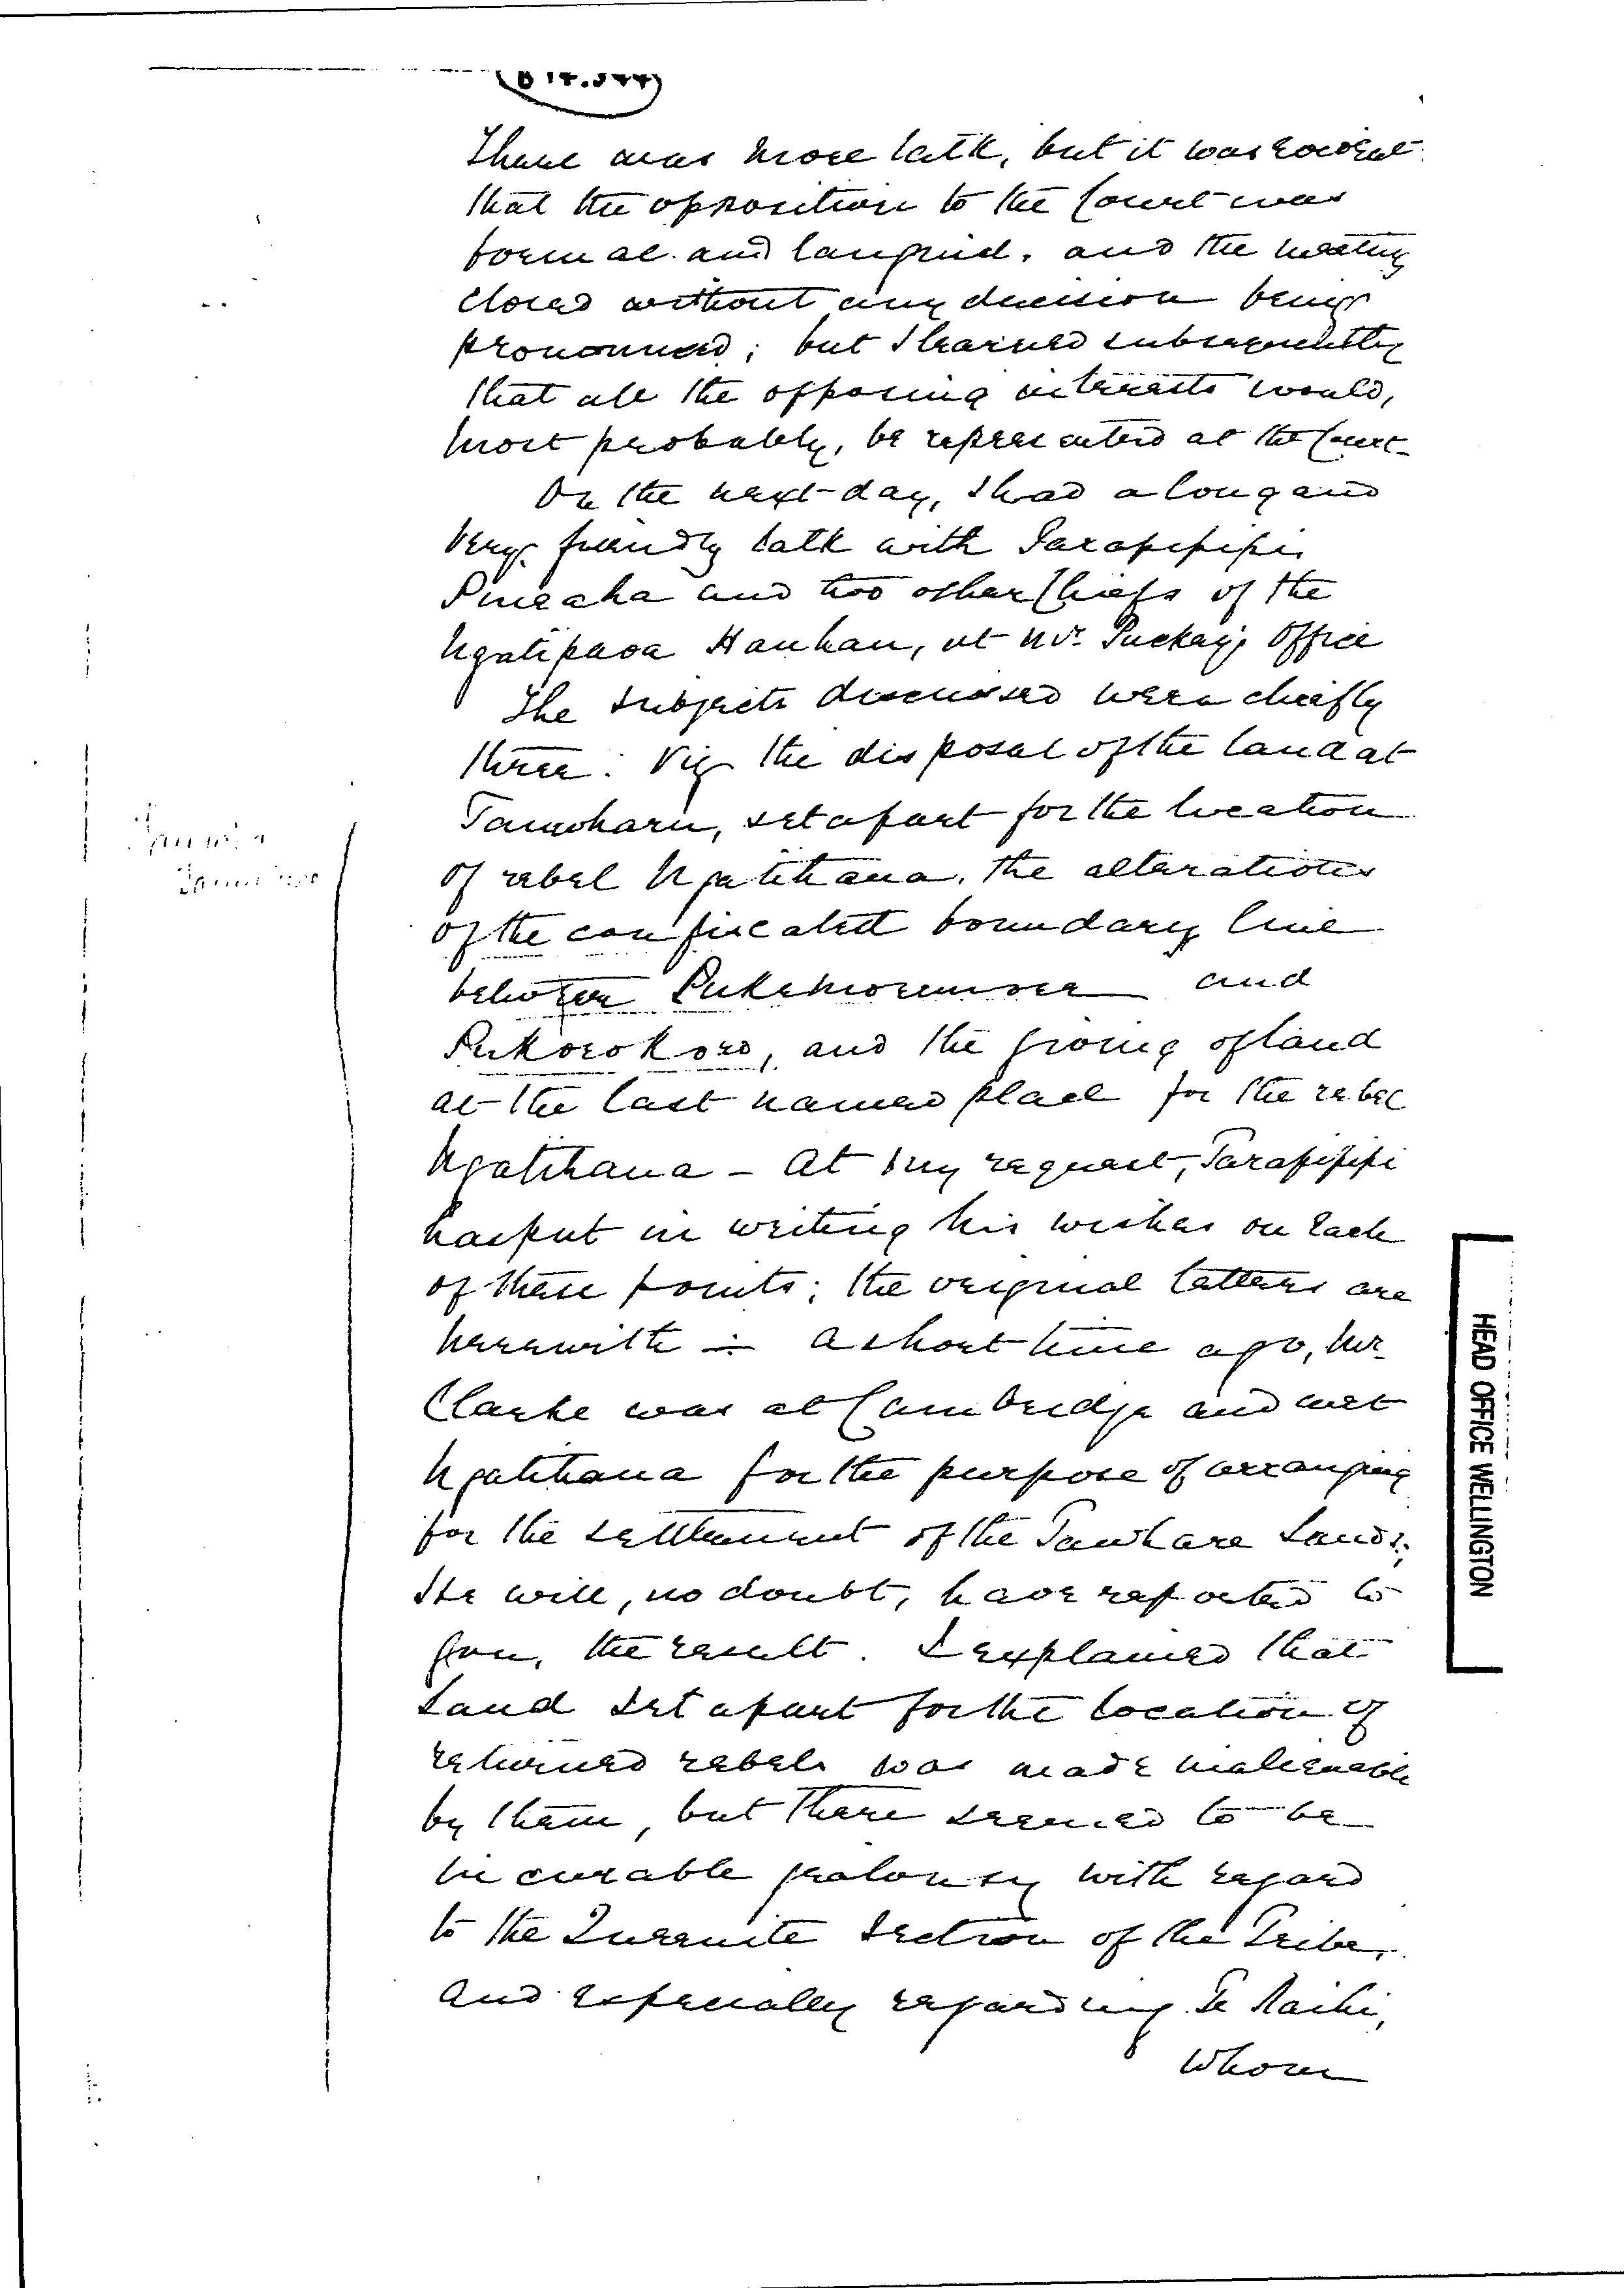 There was more talk, but it was evident
that the opposition to the Court was
formal and languid, and the meeting
closed without any decision being
pronounced; but I learned subsequently
that all the opposing interests would,
most probably, be represented at the Court.
On the next day, I had a long and
very friendly talk with Tarapipipi
and two other Chiefs of the
Ngatipaoa Hauhau, at Mr. Puckey's Office
The subjects discussed were chiefly
three: Viz the disposal of the land at
Tauwhare, set apart for the location
of rebel Ngatihaua, the alterations
of the confiscated boundary line
between Pukemoremore and
Pukorokoro, and the giving of land
at the last named place for the rebel
Ngatihaua – At my request, Tarapipipi
has put in writing his wishes on each
of these points; the original letters are
herewith – A short time ago, Mr.
Clarke was at Cambridge and met
Ngatihaua for the purpose of arranging
for the settlement of the Tauhare Lands;
He will, no doubt, have reported to
you, the result. I explained that
Land set apart for the location of
returned rebels was made inalienable
by them, but there seemed to be
incurable jealousy with regard
to the Queenite Section of the Tribe,
and especially regarding Te Raihi,
Whom
HEAD OFFICE WELLINGTON